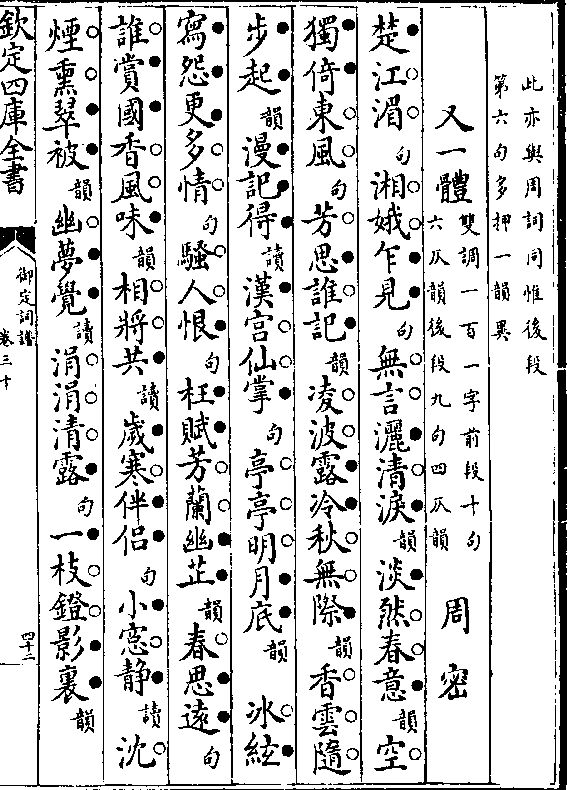 此亦與周詞同惟後段
第六句多押一韻異
又一體
雙調一百一字前段十句
六仄韻後段九句四仄韻
周密
楚江湄句湘娥乍見句無言灑清淚韻淡然春意韻空
獨倚東風句芳思誰記韻凌波露冷秋無際韻香雲隨
步起韻漫記得讀漢宮仙掌句亭亭明月底韻 冰絃
寫怨更多情句騷人恨句枉賦芳蘭幽芷韻春思遠句
誰賞國香風味韻相將共讀歲寒伴侶句小窓静讀沈
煙熏翠被韻幽夢覺讀涓涓清露句一枝鐙影裏韻
欽定四庫全書
御定詞譜
卷三十
四十二